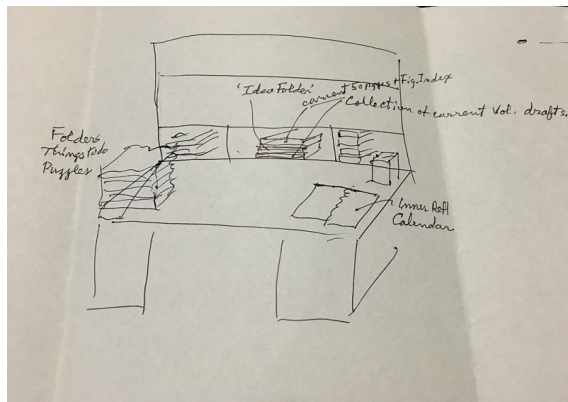 'Idea Folder'
current songs + Fig. Index
Collection of current Vol. drafts.
Folders
Things todo
Puzzles
Inner Refl
Calendar